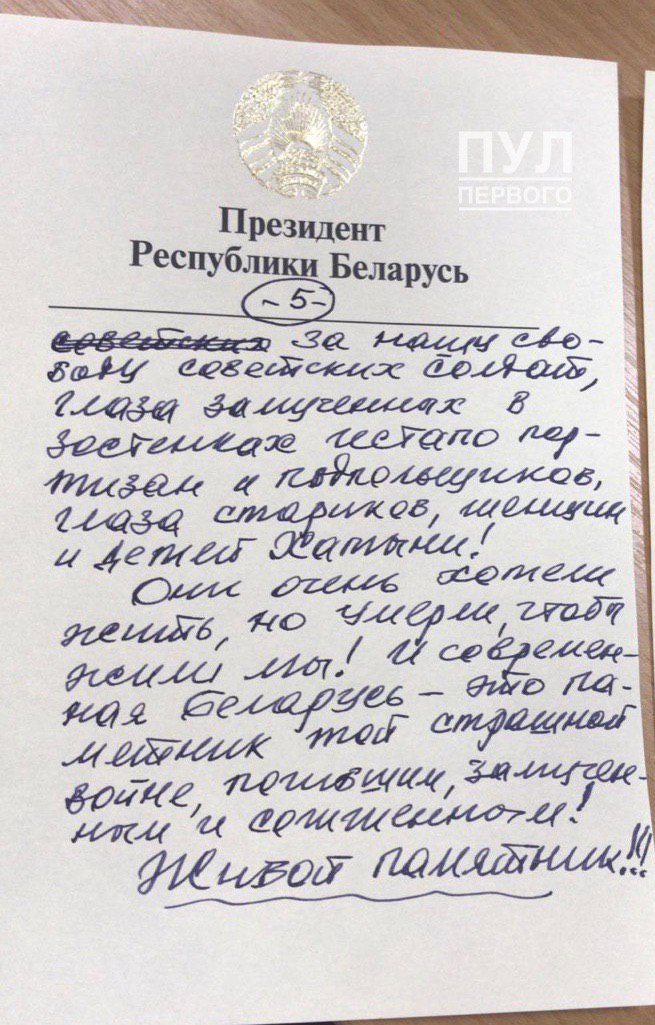 ПУЛ
ПЕРВОГО
Президент
Республики Беларусь
- 5 -
советских за нашу сво-
боду советских солдат,
глаза замученных в
застенках гестапо пар-
тизан и подпольщиков,
глаза стариков, женщин
и детей Хатыни!
Они очень хотели
жить, но умерли, чтобы
жили мы! И современ-
ная Беларусь – это па-
мятник той страшной
войне, погибшим, замучен-
ным и сожженным!
Живой памятник!!!